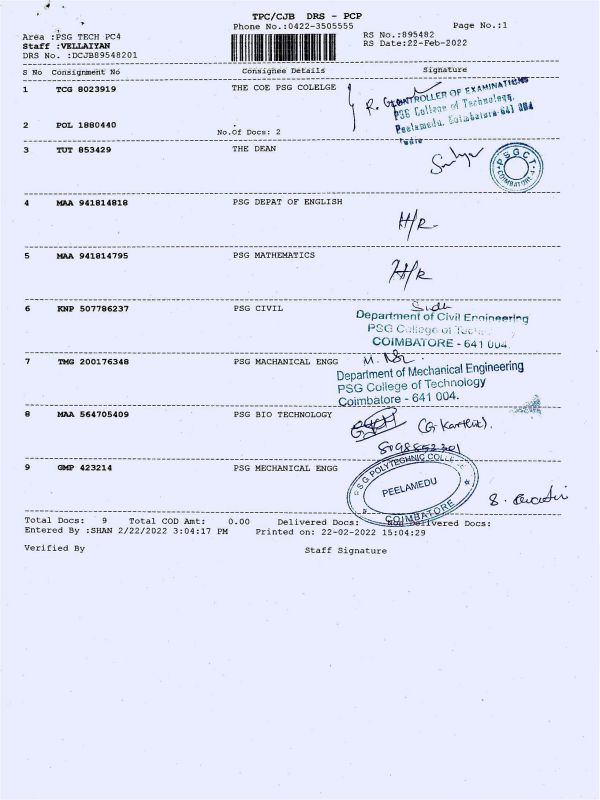 TPC/CJB DRS - PCP
Phone No.:0422-3505555 Page No.:1
Area :PSG TECH PC4 RS No.:895482
Staff :VELLAIYAN RS Date:22-Feb-2022
DRS No. :DCJB89548201
S No Consignment No Consignee Details Signature
1 TCG 8023919 THE COE PSG COLELGE
CONTROLLER OF EXAMINATIONS
PSG College of Technology,
Peelamedu, Coimbatore-641 004
2 POL 1880440
No.Of Docs: 2
3 TUT 853429 THE DEAN
PSGCT
COIMBATORE-4
4 MAA 941814818 PSG DEPAT OF ENGLISH
H/R
5 MAA 941814795 PSG MATHEMATICS
H/R
6 KNP 507786237 PSG CIVIL
Department of Civil Engineering
PSG College of
COIMBATORE - 641 004.
7 TMG 200176348 PSG MACHANICAL ENGG
Department of Mechanical Engineering
PSG College of Technology
Coimbatore - 641 004.
8 MAA 564705409 PSG BIO TECHNOLOGY
(G. Karthik).
9 GMP 423214 PSG MECHANICAL ENGG
PSG POLYTECHNIC COLLEGE
PEELAMEDU
COIMBATORE
Total Docs: 9 Total COD Amt: 0.00 Delivered Docs: Non Delivered Docs:
Entered By :SHAN 2/22/2022 3:04:17 PM Printed on: 22-02-2022 15:04:29
Verified By Staff Signature